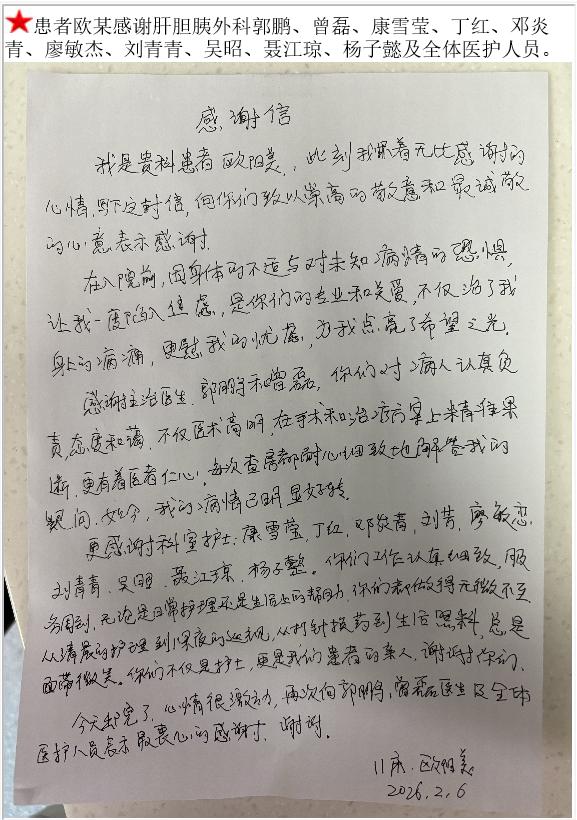 患者欧某感谢肝胆胰外科郭鹏、曾磊、康雪莹、丁红、邓炎
青、廖敏杰、刘青青、吴昭、聂江琼、杨子懿及全体医护人员。
感谢信
我是贵科患者欧阳美,此刻我怀着无比感谢的
心情,写下这封信,向你们致以崇高的敬意和最诚敬
的心意表示感谢.
在入院前,因身体的不适与对未知病情的恐惧,
让我一度陷入焦虑,是你们的专业和关爱,不仅治了我
身上的病痛,更慰我的忧虑,为我点亮了希望之光.
感谢主治医生:郭鹏和曾磊,你们对病人认真负
责,态度和蔼.不仅医术高明,在手术和治疗方案上精准果
断,更有着医者仁心.每次查房都耐心细致地解答我的
疑问.如今,我的病情已明显好转.
更感谢科室护士:康雪莹,丁红,邓炎青,刘芳,廖敏
刘青青,吴昭,聂江琼,杨子懿。你们工作认真细致,服
务周到,无论是日常护理还是生活上的帮助,你们都做得无微不至
从清晨的护理到深夜的巡视,从打针换药到生活照料,总是
面带微笑。你们不仅是护士,更是我们患者的亲人,谢谢你们.
今天出院了,心情很激动,再次向郭鹏,曾磊医生及全体
医护人员表示最衷心的感谢!谢谢.
11床.欧阳美
2026.2.6